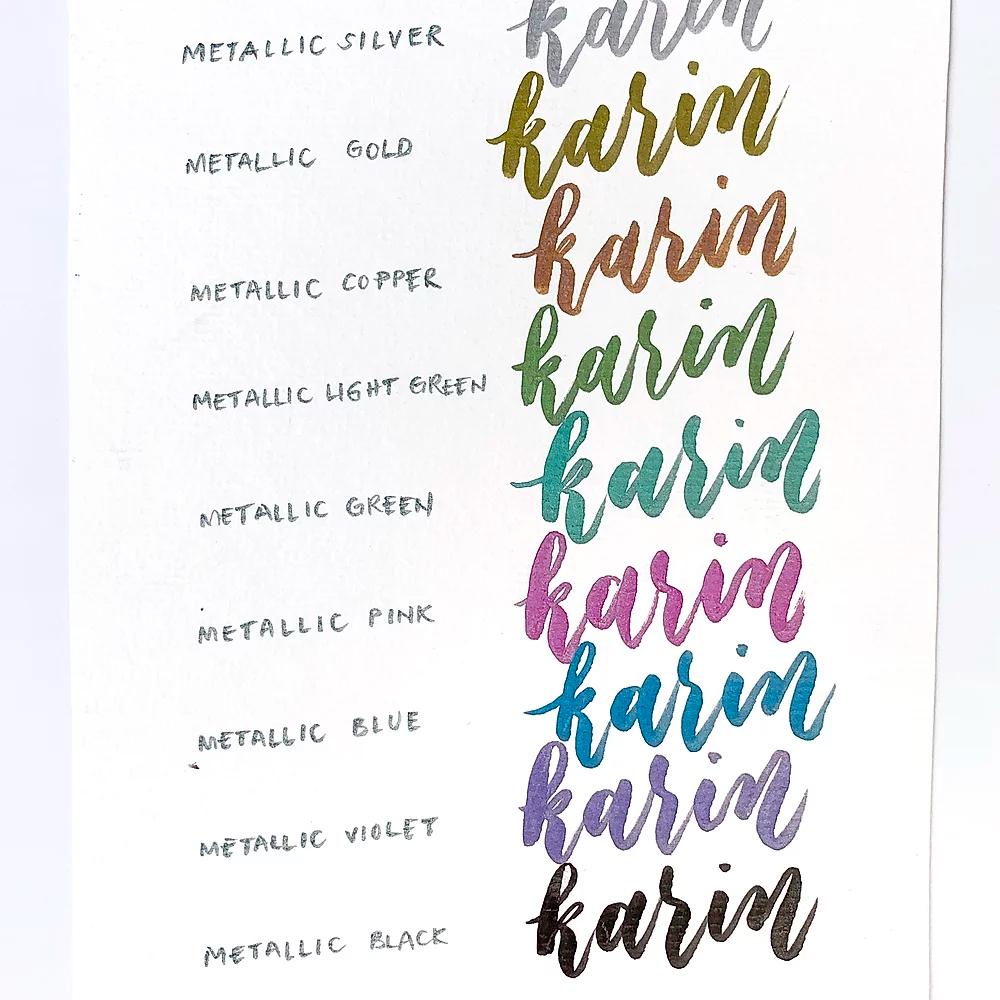 METALLIC SILVER karin
METALLIC GOLD karin
METALLIC COPPER karin
METALLIC LIGHT GREEN karin
METALLIC GREEN karin
METALLIC PINK karin
METALLIC BLUE karin
METALLIC VIOLET karin
METALLIC BLACK karin